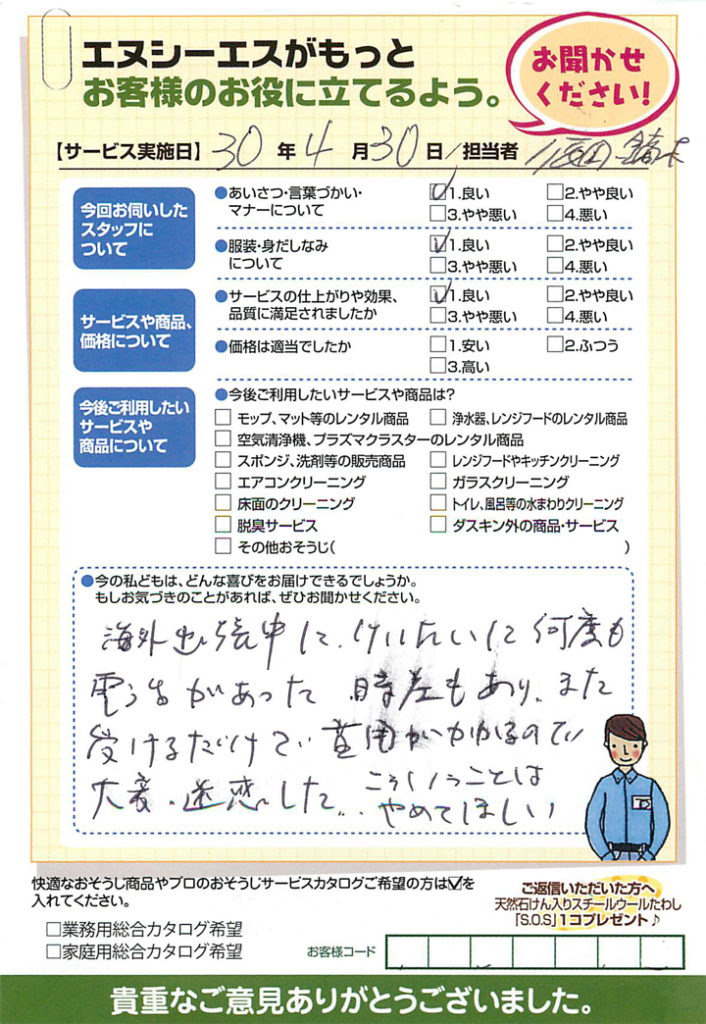 エヌシーエスがもっと
お客様のお役に立てるよう。
お聞かせ
ください!
【サービス実施日】30年4月30日/担当者
今回お伺いした
スタッフに
ついて
●あいさつ・言葉づかい・
マナーについて
☑1.良い □2.やや良い
□3.やや悪い □4.悪い
●服装・身だしなみ
について
☑1.良い □2.やや良い
□3.やや悪い □4.悪い
サービスや商品、
価格について
●サービスの仕上がりや効果、
品質に満足されましたか
☑1.良い □2.やや良い
□3.やや悪い □4.悪い
●価格は適当でしたか
□1.安い □2.ふつう
□3.高い
今後ご利用したい
サービスや
商品について
●今後ご利用したいサービスや商品は?
□ モップ、マット等のレンタル商品 □ 浄水器、レンジフードのレンタル商品
□ 空気清浄機、プラズマクラスターのレンタル商品
□ スポンジ、洗剤等の販売商品 □ レンジフードやキッチンクリーニング
□ エアコンクリーニング □ ガラスクリーニング
□ 床面のクリーニング □ トイレ、風呂等の水まわりクリーニング
□ 脱臭サービス □ ダスキン外の商品・サービス
□ その他おそうじ( )
●今の私どもは、どんな喜びをお届けできるでしょうか。
もしお気づきのことがあれば、ぜひお聞かせください。
海外出張中に、けいたいに何度も
電話があった 時差もあり、また
受けるだけで費用がかかるので
大変、迷惑した… こういうことは
やめてほしい
快適なおそうじ商品やプロのおそうじサービスカタログご希望の方は☑を
入れてください。
□業務用総合カタログ希望
□家庭用総合カタログ希望
ご返信いただいた方へ
天然石けん入りスチールウールたわし
「S.O.S」1コプレゼント♪
お客様コード
貴重なご意見ありがとうございました。